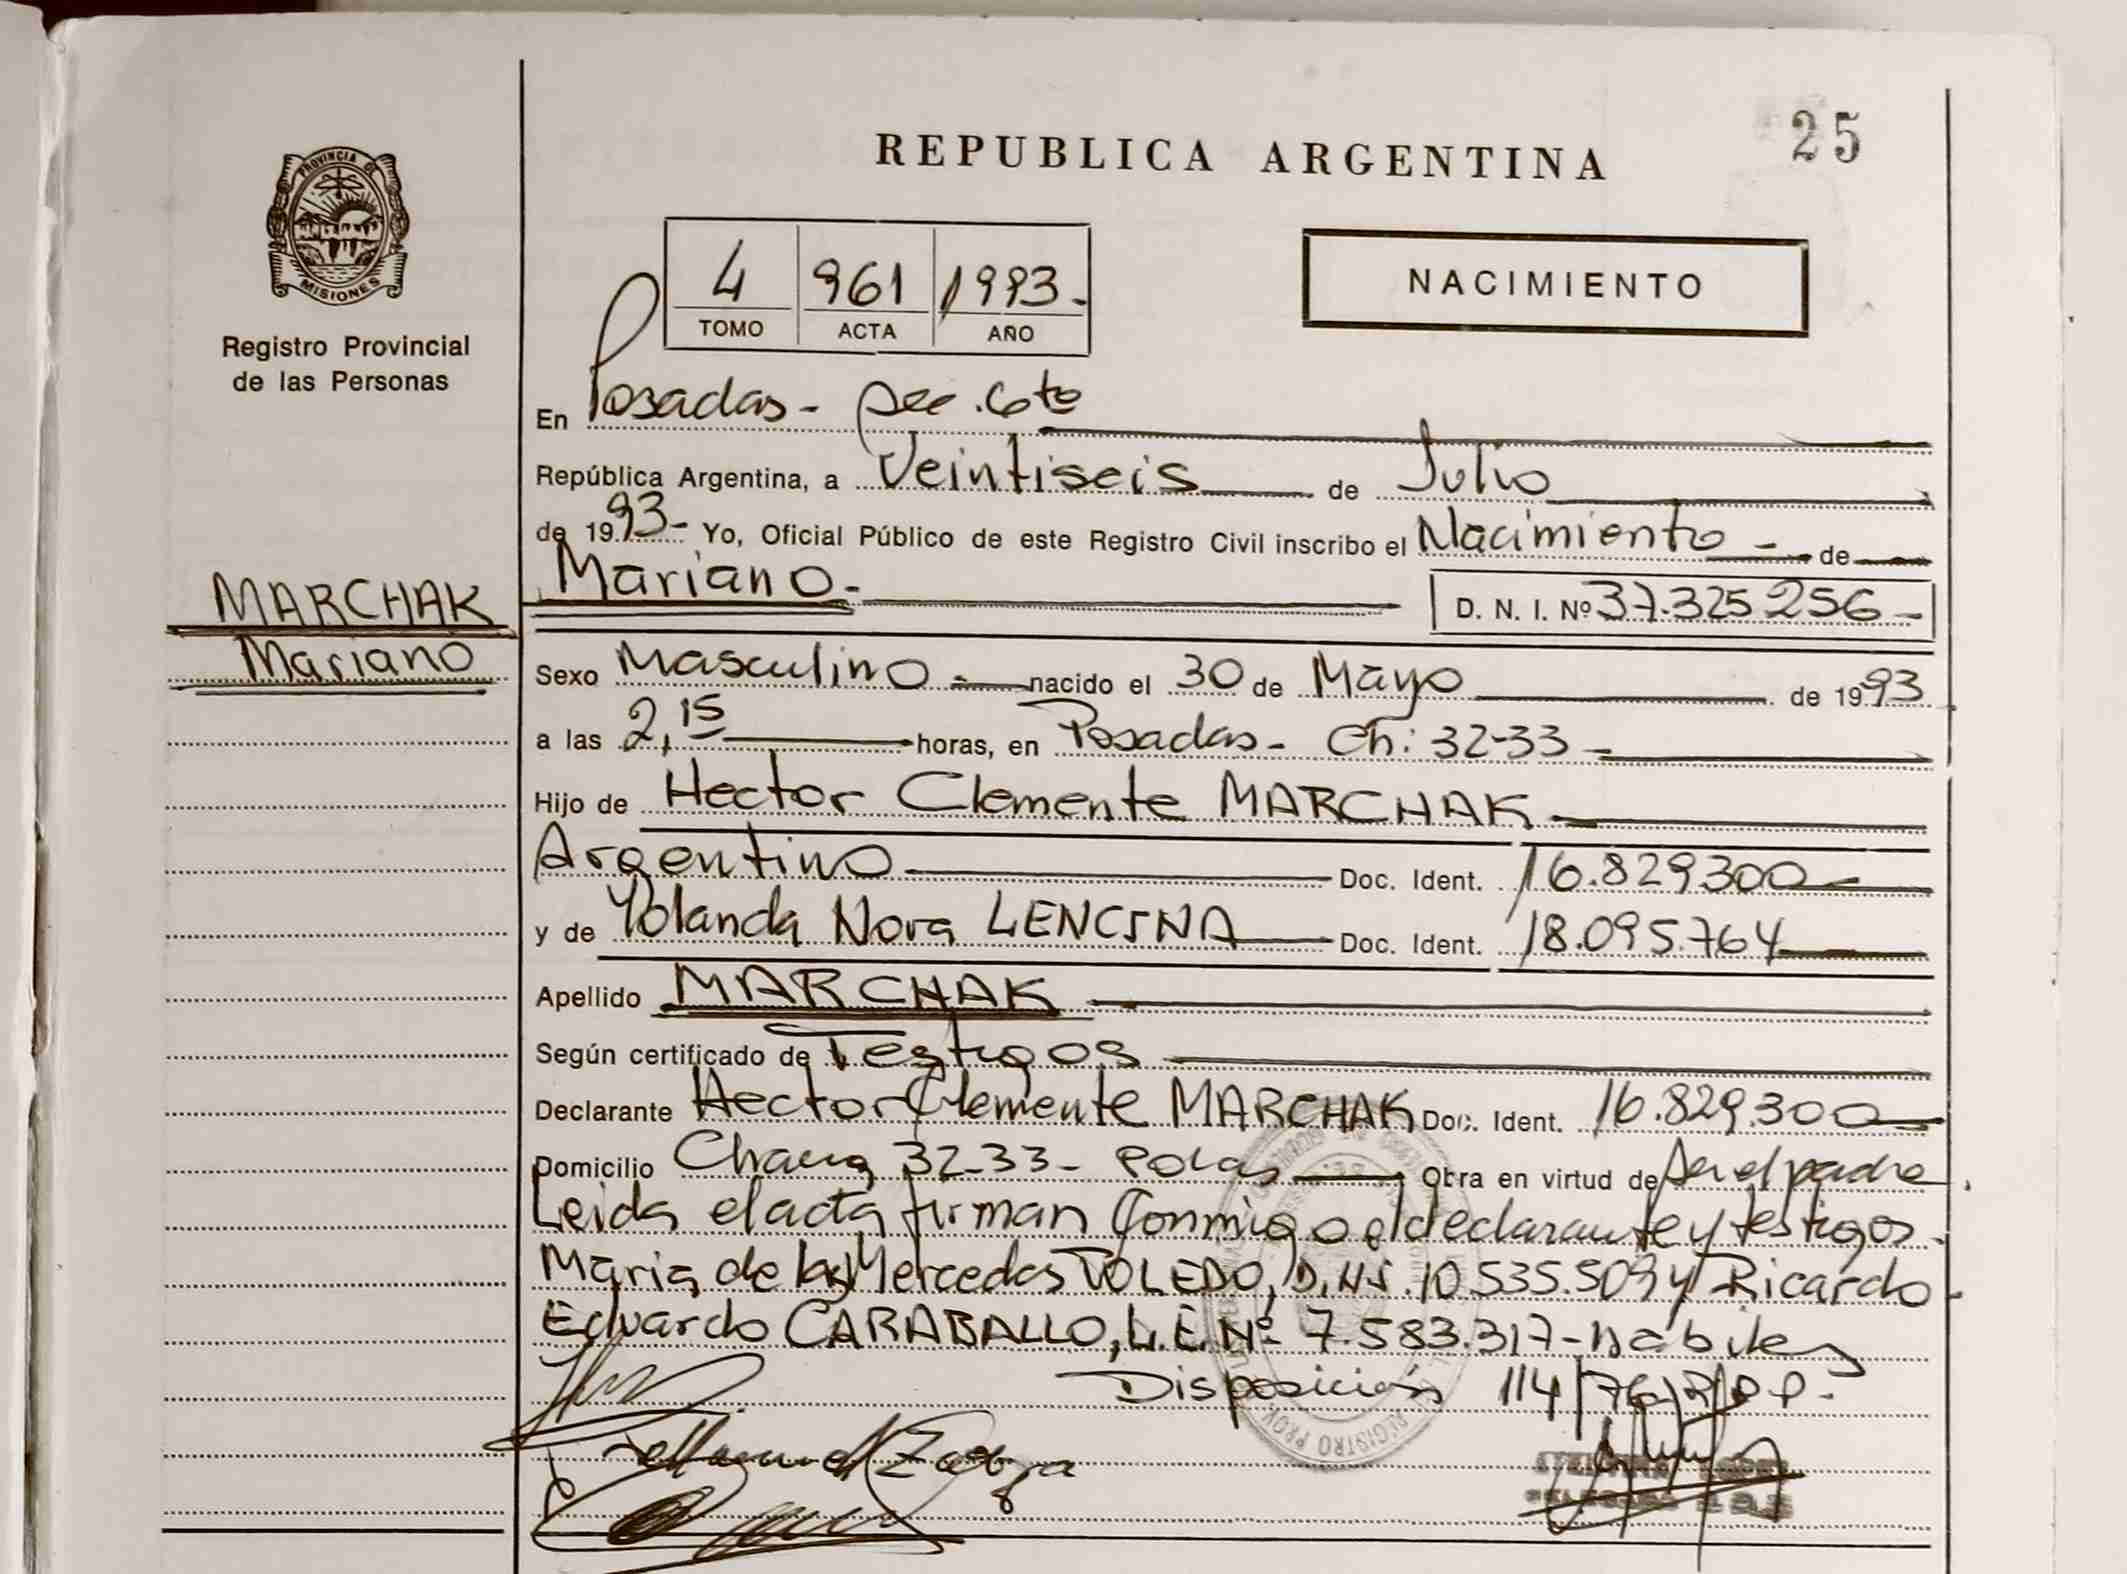 REPUBLICA ARGENTINA
25
PROVINCIA DE
MISIONES
Registro Provincial
de las Personas
4 961 1993-
TOMO ACTA AÑO
NACIMIENTO
En Posadas - Sec. 6ta
República Argentina, a Veintiseis de Julio
de 1993- Yo, Oficial Público de este Registro Civil inscribo el Nacimiento - de
Mariano - D. N. I. Nº 37.325256-
MARCHAK
Mariano
Sexo Masculino nacido el 30 de Mayo de 1993
a las 2,15 horas, en Posadas - Ch: 32-33 -
Hijo de Hector Clemente MARCHAK
Argentino Doc. Ident. 16.829300
y de Yolanda Nora LENCINA Doc. Ident. 18.095.764
Apellido MARCHAK
Según certificado de Testigos
Declarante Hector Clemente MARCHAK Doc. Ident. 16.829.300
Domicilio Chacra 32-33- Pdas Obra en virtud de Ser el padre.
Leida el acta firman Conmigo el declarante y testigos
Maria de las Mercedes TOLEDO, D.N.I. 10.535.509 y Ricardo
Eduardo CARABALLO, L.E.Nº 7.583.317-habiles
Disposición 114/76/R/P.P.-
REGISTRO PROV